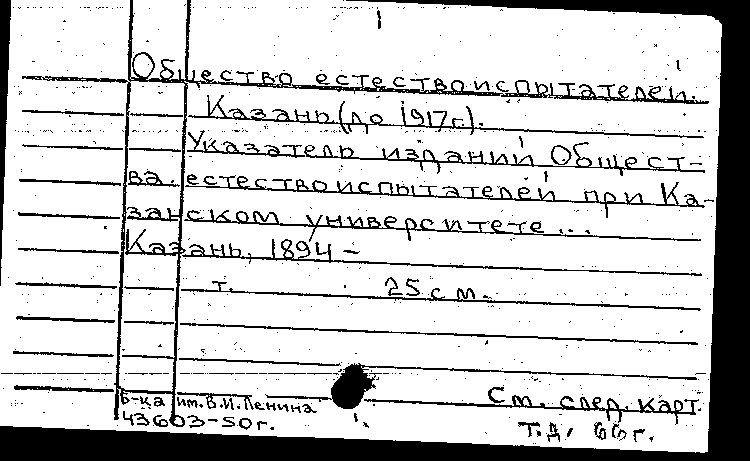 Общество естествоиспытателей.
Казань (до 1917г).
Указатель изданий Общест-
ва. естествоиспытателей при Ка-
занском университете...
Казань, 1894 –
т. 25 см.
См. след. карт.
Б-ка им. В.И. Ленина
43603-50г.
Т.Д. 66г.